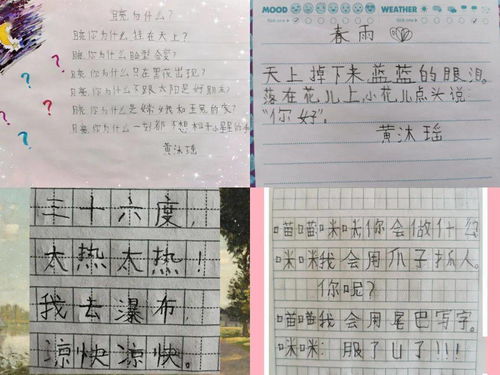 月亮为什么?
月亮你为什么挂在天上?
月亮你为什么脸型会变?
月亮你为什么只在黑夜出现?
月亮你为什么不跟太阳是好朋友?
月亮你为什么是嫦娥和玉兔的家?
月亮你为什么一刻都不想和小星星
黄沐瑶
MOOD
WEATHER
春雨
天上掉下来蓝蓝的眼泪
落在花儿上,小花儿点头说:
“你好”。
黄沐瑶
三十六度,
太热太热!
我去瀑布,
凉快凉快。
喵喵:咪咪你会做什么
咪咪:我会用爪子抓人。
你呢?
喵喵:我会用尾巴写字。
咪咪:服了U了!!!